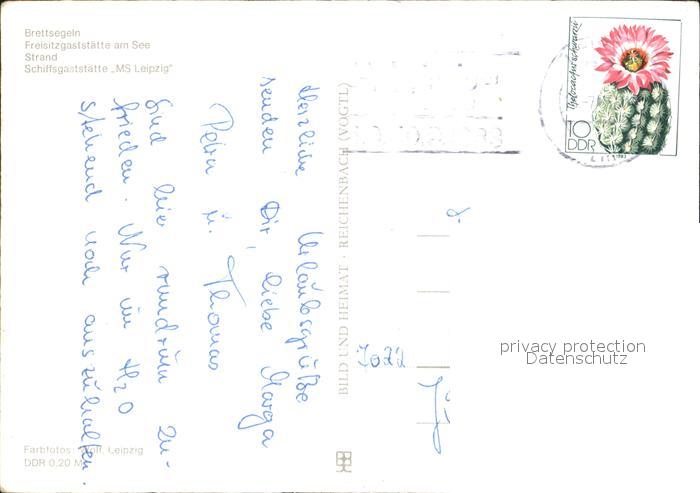 Brettsegeln
Freisitzgaststätte am See
Strand
Schiffsgaststätte „MS Leipzig"
Herzliche Urlaubsgrüße
senden Dir, liebe Marga
Petra u. Thomas
Sind hier rundrum zu-
frieden. Nur im H2O
stehend noch auszuhalten.
Farbfotos: Leipzig
DDR 0,20 M
BILD UND HEIMAT · REICHENBACH (VOGTL)
10
DDR
1983
7022
privacy protection
Datenschutz